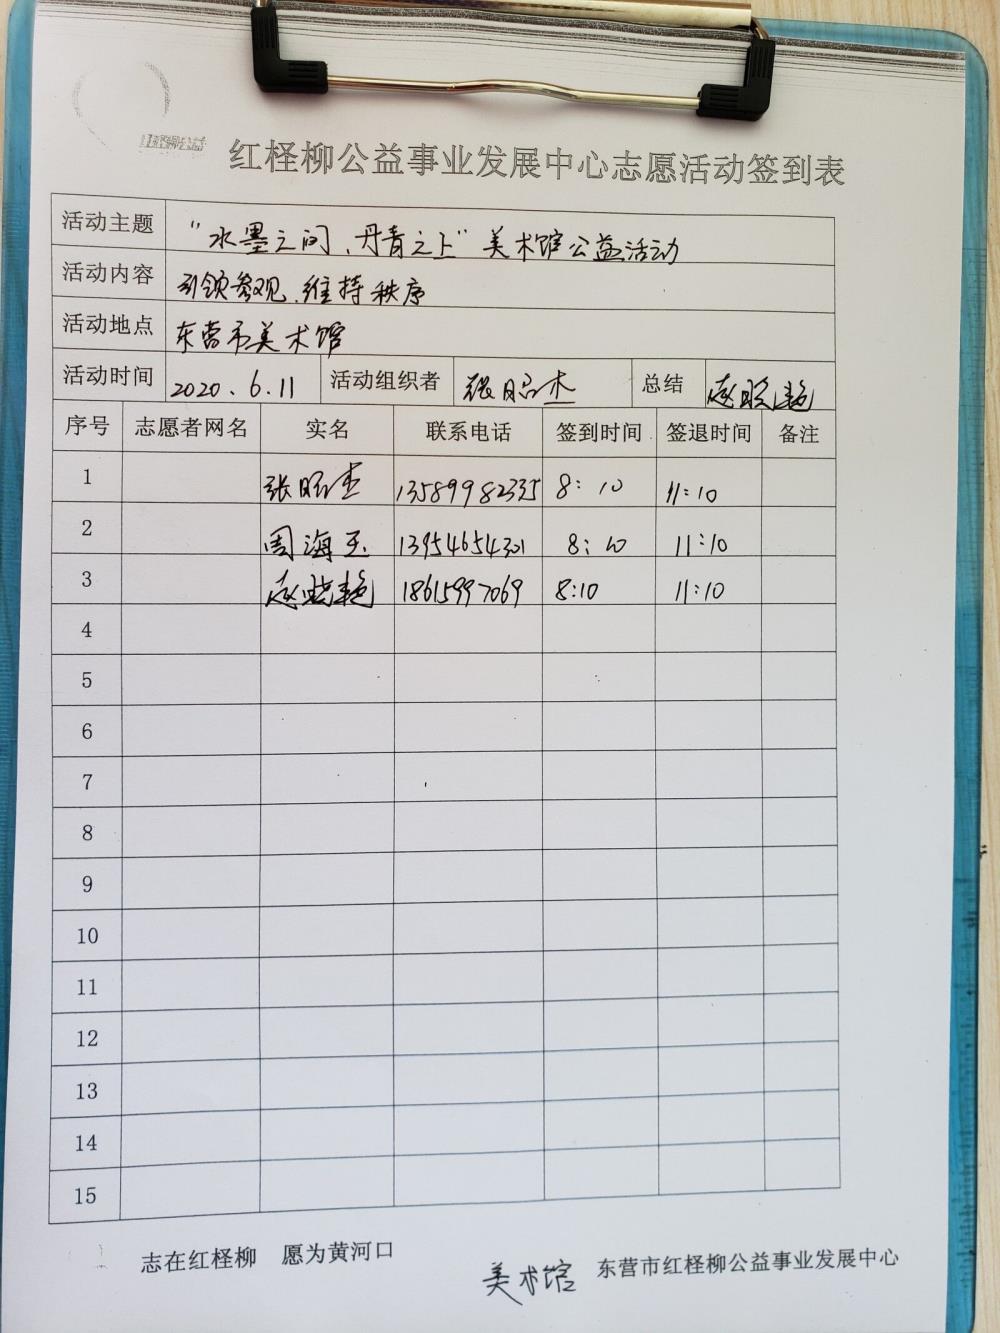 红柽柳公益事业发展中心志愿活动签到表
活动主题 "水墨之间、丹青之上"美术馆公益活动
活动内容 引领参观、维持秩序
活动地点 东营市美术馆
活动时间 2020.6.11 活动组织者 张昭杰 总结 赵晓艳
序号 志愿者网名 实名 联系电话 签到时间 签退时间 备注
1 张昭杰 13589982335 8:10 11:10
2 周海玉 13954654301 8:10 11:10
3 赵晓艳 18615997069 8:10 11:10
4
5
6
7
8
9
10
11
12
13
14
15
志在红柽柳 愿为黄河口
美术馆 东营市红柽柳公益事业发展中心